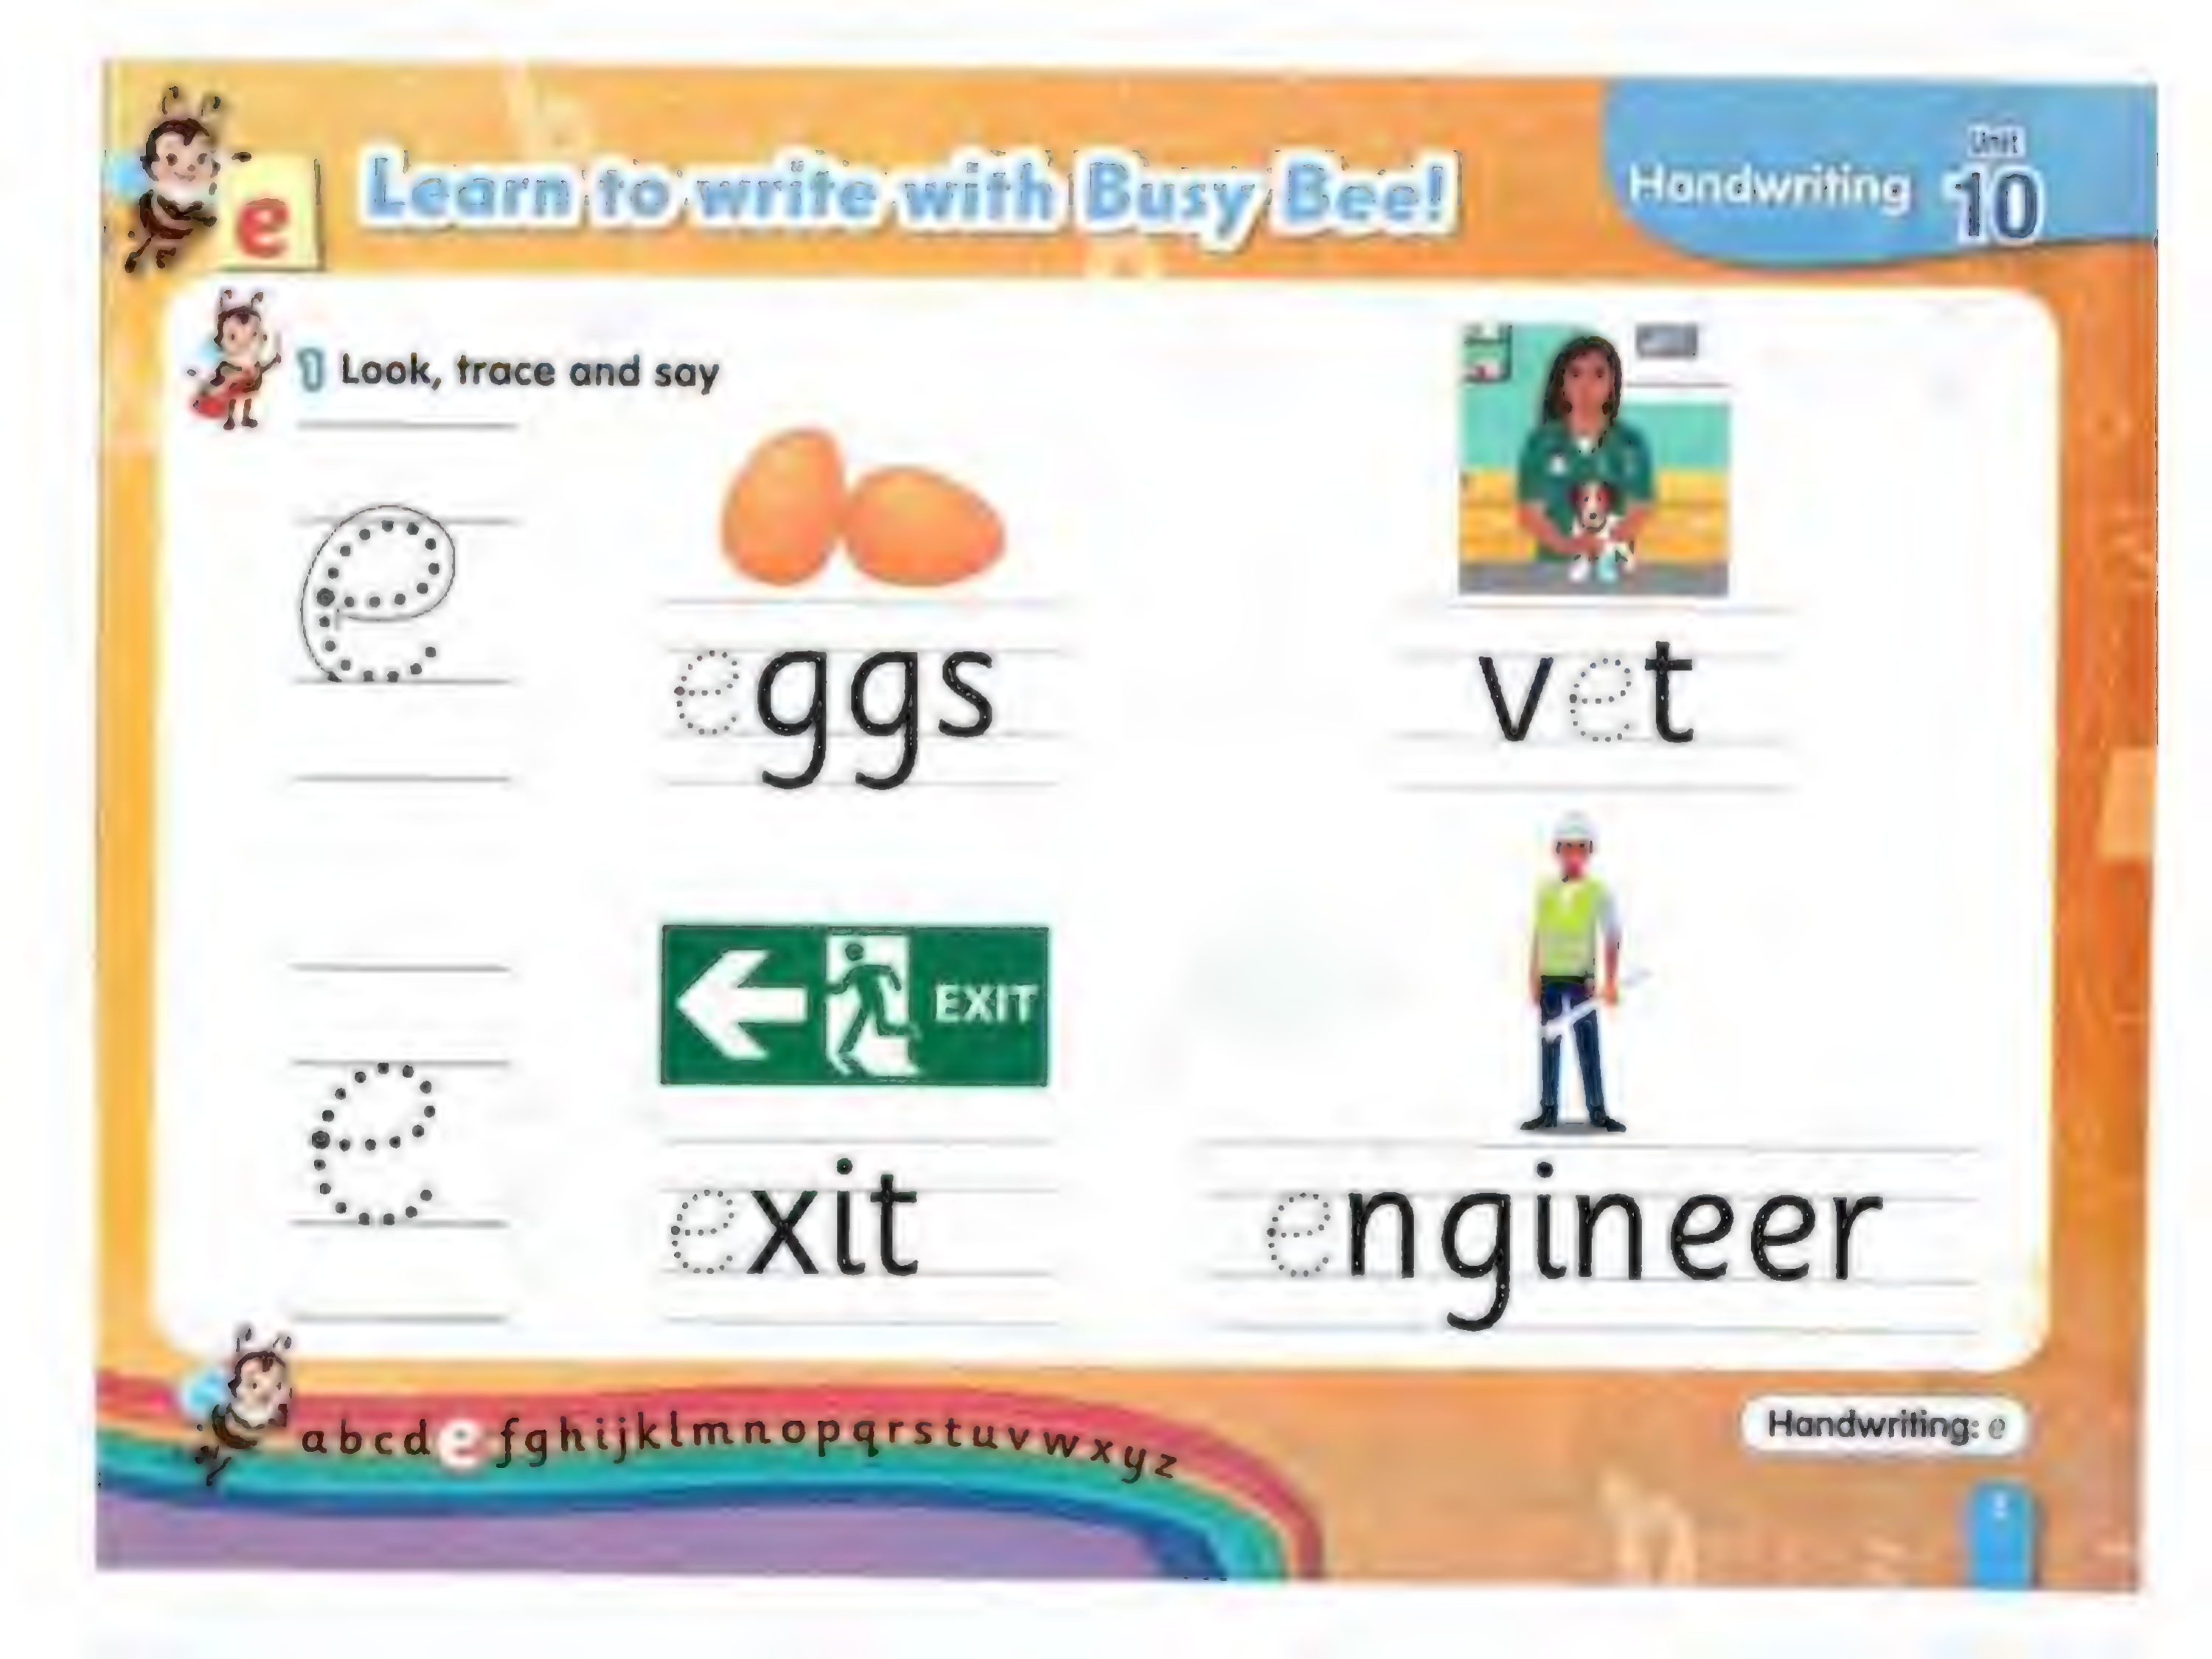 e
Learn to write with Busy Bee!
Handwriting
Unit
10
1 Look, trace and say
e
eggs
vet
EXIT
e
exit
engineer
a b c d e f g h i j k l m n o p q r s t u v w x y z
Handwriting: e